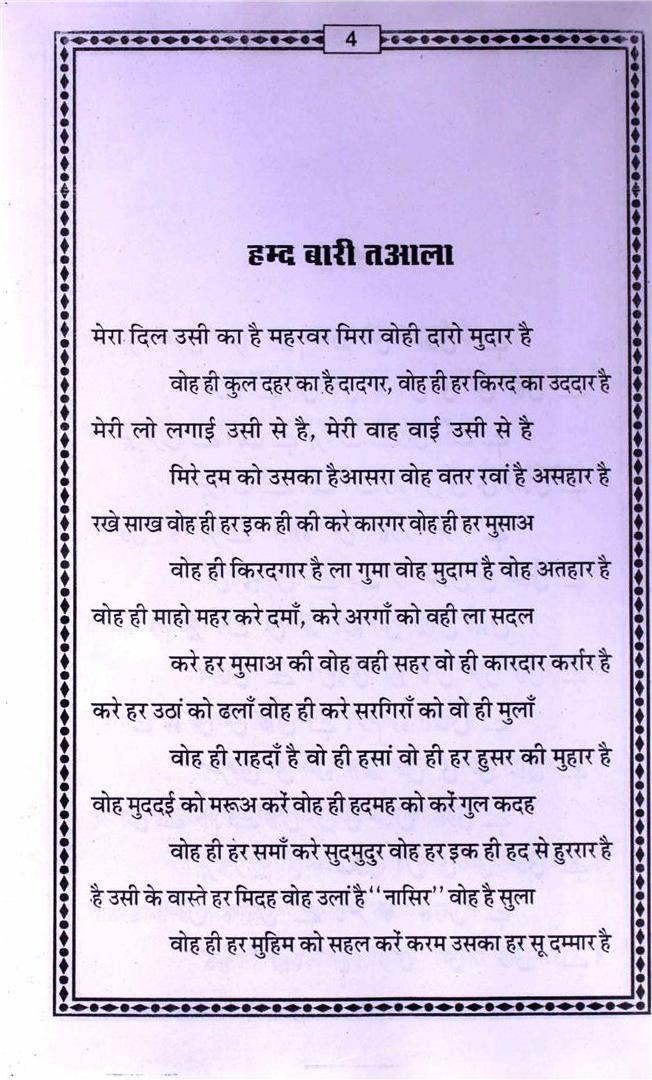 4
हम्द बारी तआला
मेरा दिल उसी का है महरवर मिरा वोही दारो मुदार है
वोह ही कुल दहर का है दादगर, वोह ही हर किरद का उददार है
मेरी लो लगाई उसी से है, मेरी वाह वाई उसी से है
मिरे दम को उसका हैआसरा वोह वतर रवां है असहार है
रखे साख वोह ही हर इक ही की करे कारगर वोह ही हर मुसाअ
वोह ही किरदगार है ला गुमा वोह मुदाम है वोह अतहार है
वोह ही माहो महर करे दमाँ, करे अरगाँ को वही ला सदल
करे हर मुसाअ की वोह वही सहर वो ही कारदार कर्रार है
करे हर उठां को ढलाँ वोह ही करे सरगिराँ को वो ही मुलाँ
वोह ही राहदाँ है वो ही हसां वो ही हर हुसर की मुहार है
वोह मुददई को मरूअ करें वोह ही हदमह को करें गुल कदह
वोह ही हर समाँ करे सुदमुदुर वोह हर इक ही हद से हुररार है
है उसी के वास्ते हर मिदह वोह उलां है "नासिर" वोह है सुला
वोह ही हर मुहिम को सहल करें करम उसका हर सू दम्मार है